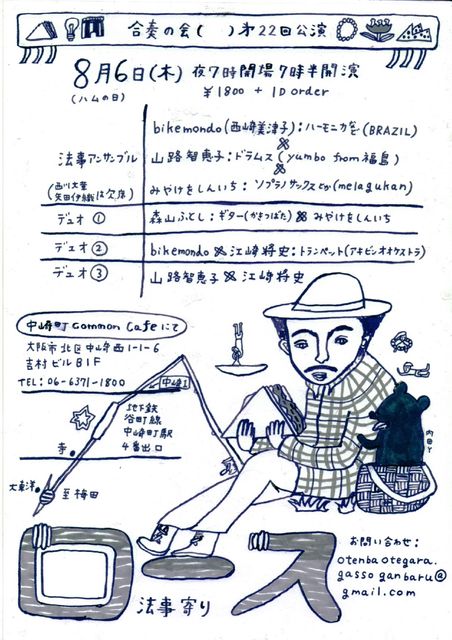 合奏の会(　)才22回公演
8月6日(木) 夜7時開場7時半開演
(ハムの日)
¥1800 + 1D order
法事アンサンブル
(西川文葉
矢田伊織は欠席)
bikemondo(西崎美津子):ハーモニカなど(BRAZIL)
山路智恵子:ドラムス(yumbo from 福島)
みやけをしんいち:ソプラノサックスとか(melagukan)
デュオ①
森山ふとし:ギター(かきつばた) × みやけをしんいち
デュオ②
bikemondo × 江崎將史:トランペット(アキビンオオケストラ)
デュオ③
山路智恵子 × 江崎將史
中崎町 common cafe にて
大阪市北区中崎西1-1-6
吉村ビルB1F
TEL:06-6371-1800
←中崎1
地下鉄
谷町線
中崎町駅
4番出口
寺
大東洋
至梅田
内田Y
ロス
法事寄り
お問い合わせ:
otenba otegara.
gasso ganbaru@
gmail.com